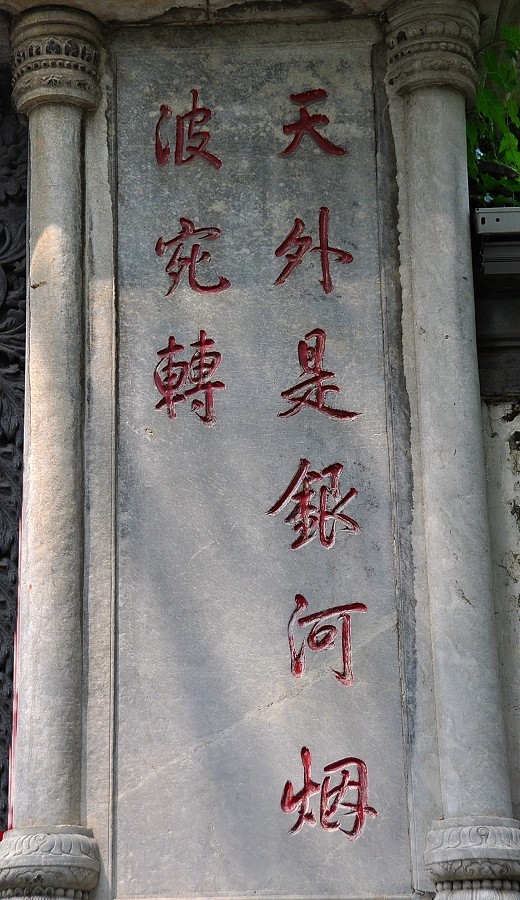 天外是銀河烟
波宛轉